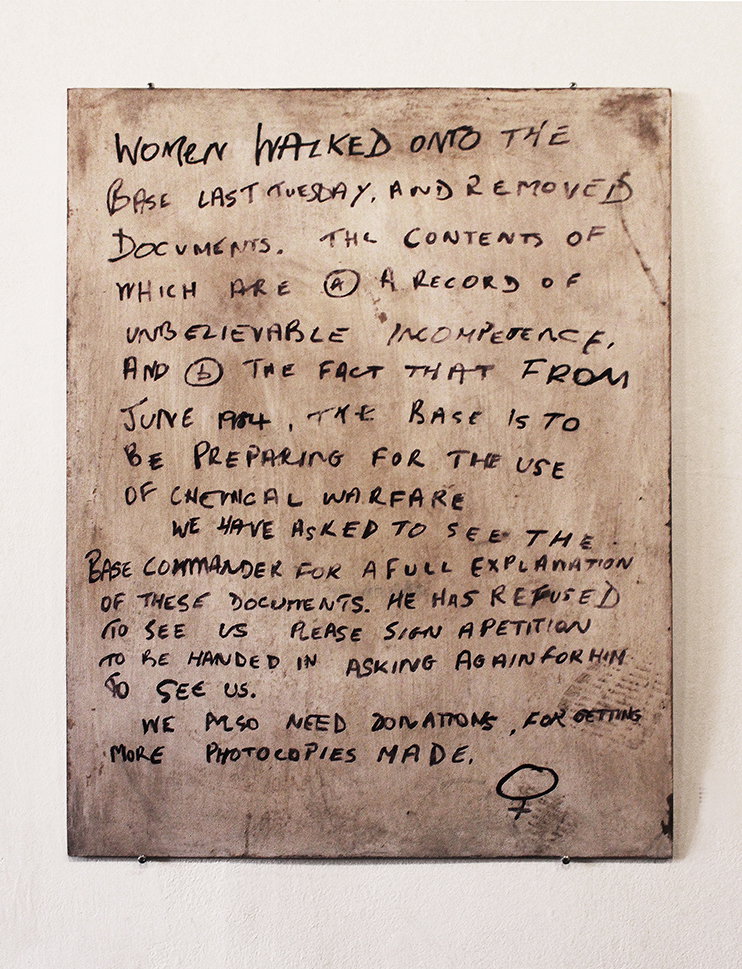 WOMEN WALKED ONTO THE
BASE LAST TUESDAY, AND REMOVED
DOCUMENTS. THE CONTENTS OF
WHICH ARE (A) A RECORD OF
UNBELIEVABLE INCOMPETENCE,
AND (b) THE FACT THAT FROM
JUNE 1984, THE BASE IS TO
BE PREPARING FOR THE USE
OF CHEMICAL WARFARE
WE HAVE ASKED TO SEE THE
BASE COMMANDER FOR A FULL EXPLANATION
OF THESE DOCUMENTS. HE HAS REFUSED
TO SEE US PLEASE SIGN A PETITION
TO BE HANDED IN ASKING AGAIN FOR HIM
TO SEE US.
WE ALSO NEED DONATIONS, FOR GETTING
MORE PHOTOCOPIES MADE.
♀